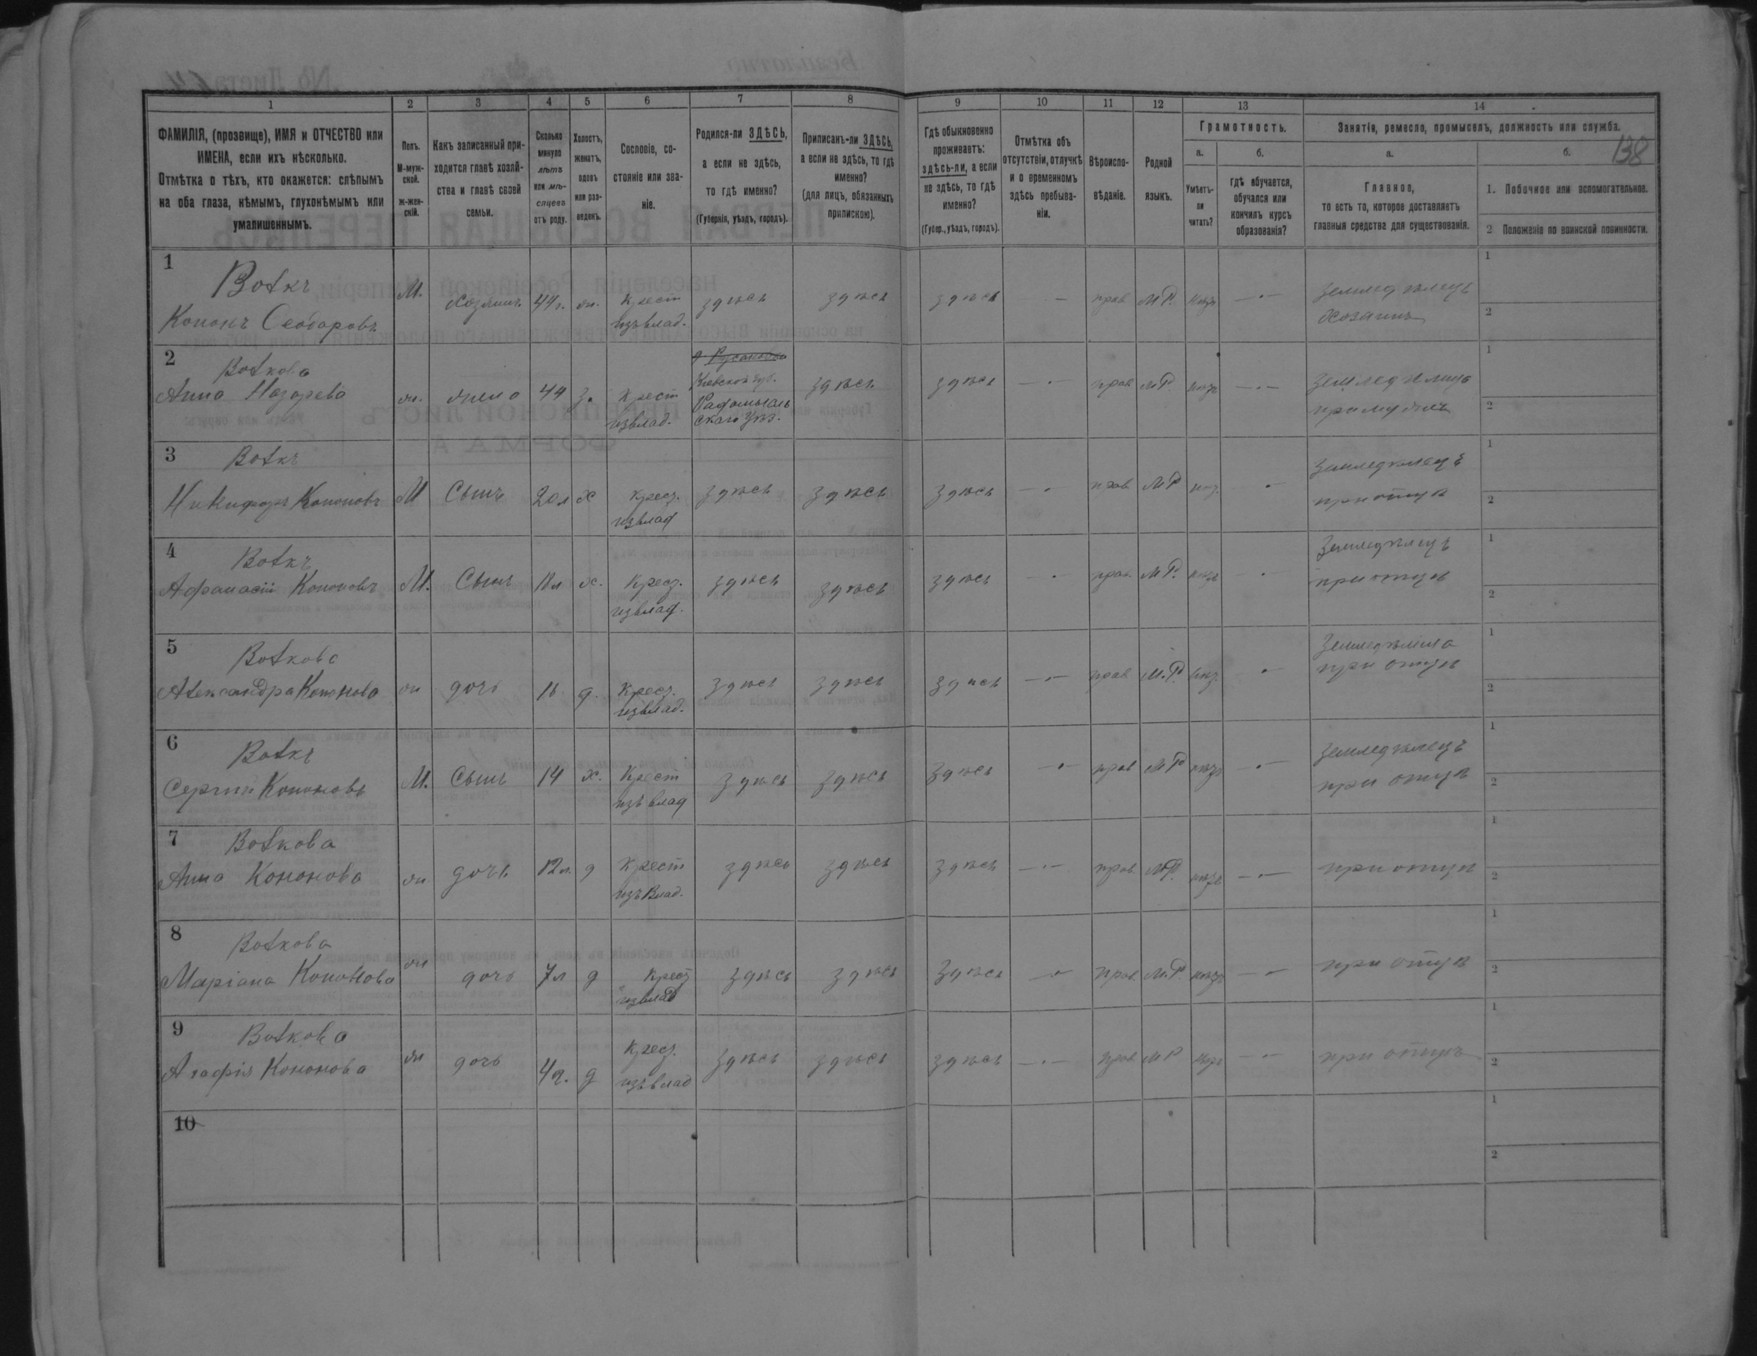 138
1 2 3 4 5 6 7 8 9 10 11 12 13 14
ФАМИЛІЯ, (прозвище), ИМЯ и ОТЧЕСТВО или
ИМЕНА, если ихъ нѣсколько.
Отмѣтка о тѣхъ, кто окажется: слѣпымъ
на оба глаза, нѣмымъ, глухонѣмымъ или
умалишеннымъ.
Полъ.
М-муж-
ской.
ж-жен-
скій.
Какъ записанный при-
ходится главѣ хозяй-
ства и главѣ своей
семьи.
Сколько
минуло
лѣтъ
или мѣ-
сяцевъ
отъ роду.
Холостъ,
женатъ,
вдовъ
или раз-
веденъ.
Сословіе, со-
стояніе или зва-
ніе.
Родился-ли ЗДѢСЬ,
а если не здѣсь,
то гдѣ именно?
(Губернія, уѣздъ, городъ).
Приписанъ-ли ЗДѢСЬ,
а если не здѣсь, то гдѣ
именно?
(для лицъ, обязанныхъ
припискою).
Гдѣ обыкновенно
проживаетъ:
здѣсь-ли, а если
не здѣсь, то гдѣ
именно?
(Губер., уѣздъ, городъ).
Отмѣтка объ
отсутствіи, отлучкѣ
и о временномъ
здѣсь пребыва-
ніи.
Вѣроиспо-
вѣданіе.
Родной
языкъ.
Грамотность.
а. б.
Умѣетъ-
ли
читать?
гдѣ обучается,
обучался или
кончилъ курсъ
образованія?
Занятіе, ремесло, промыселъ, должность или служба.
а. б.
Главное,
то есть то, которое доставляетъ
главныя средства для существованія.
1. Побочное или вспомогательное.
2 Положеніе по воинской повинности.
1
Вовкъ
Кононъ М. Хозяинъ 44 г. жн. крест здѣсь здѣсь здѣсь прав М.Р. земледѣлецъ
изъ влад. хозяинъ
2
Вовкова
Анна жн. жена 44 з. крест Кіевской губ. здѣсь здѣсь прав М.Р.
изъ влад. Радомысль
скаго уѣз. при мужѣ
3
Вовкъ
Никифоръ Кононовъ М Сынъ 20 л х крест. здѣсь здѣсь здѣсь прав М.Р. земледѣлецъ
изъ влад при отцѣ
4
Вовкъ
Афанасій Кононовъ М. Сынъ х. крест. здѣсь здѣсь здѣсь прав М.Р. земледѣлецъ
изъ влад. при отцѣ
5
Вовкова
Александра Кононова жн дочь д. крест. здѣсь здѣсь здѣсь прав М.Р.
изъ влад. при отцѣ
6
Вовкъ
Сергій Кононовъ М. Сынъ 14 х. крест здѣсь здѣсь здѣсь прав М.Р земледѣлецъ
изъ влад при отцѣ
7
Вовкова
Анна Кононова жн. дочь 12 л. д крест здѣсь здѣсь здѣсь прав М.Р. при отцѣ
изъ влад.
8
Вовкова
Маріана Кононова жн дочь 7 л д крест здѣсь здѣсь здѣсь прав М.Р при отцѣ
изъ влад
9
Вовкова
Агафія Кононова жн дочь 4 г. д крест. здѣсь здѣсь здѣсь прав М.Р при отцѣ
изъ влад
10